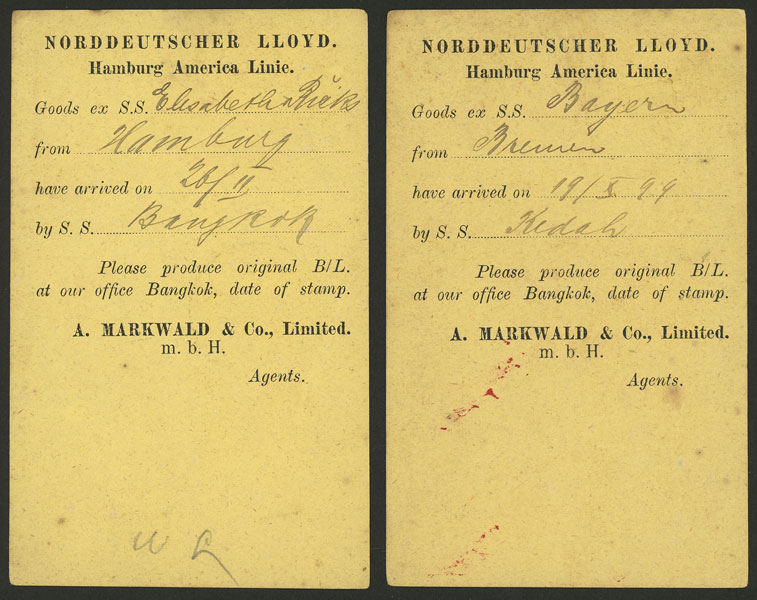 NORDDEUTSCHER LLOYD.
Hamburg America Linie.
Goods ex S.S. Elisabeth Ricks
from Hamburg
have arrived on 26/II
by S. S. Bangkok
Please produce original B/L.
at our office Bangkok, date of stamp.
A. MARKWALD & Co., Limited.
m. b. H.
Agents.
NORDDEUTSCHER LLOYD.
Hamburg America Linie.
Goods ex S.S. Bayern
from Bremen
have arrived on 19/X 99
by S. S. Kedah
Please produce original B/L.
at our office Bangkok, date of stamp.
A. MARKWALD & Co., Limited.
m. b. H.
Agents.